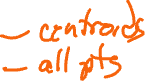 - centroids
- all pts